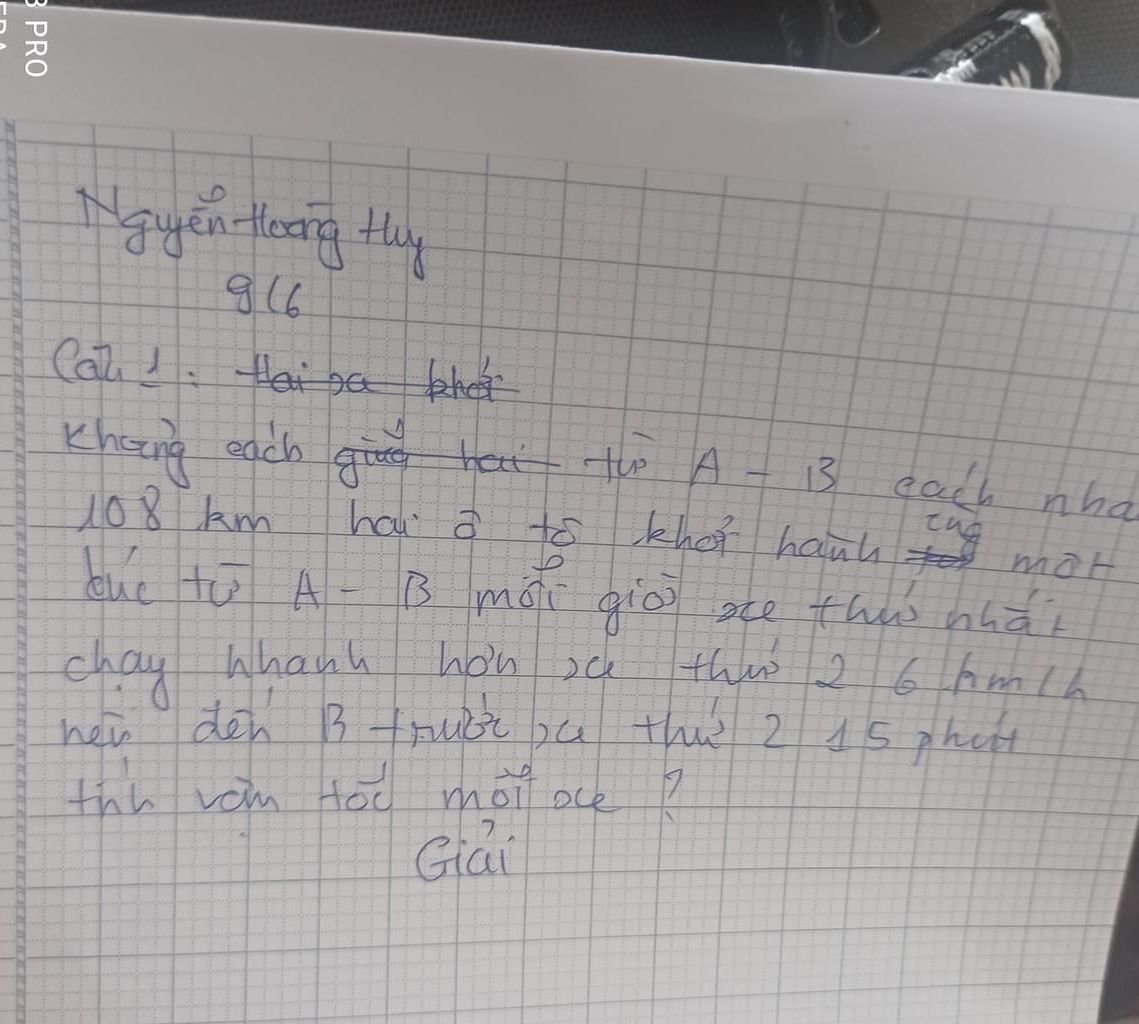 3 PRO
Nguyễn Hoàng Huy
9/6
Câu 1: Hai xe khởi
Khoảng cách giữa hai từ A - B cách nha
108 km hai ô tô khởi hành cùng một
lúc từ A - B mỗi giờ xe thứ nhất
chạy nhanh hơn xe thứ 2 6 km/h
nên đến B trước xe thứ 2 15 phút
tính vận tốc mỗi xe ?
Giải